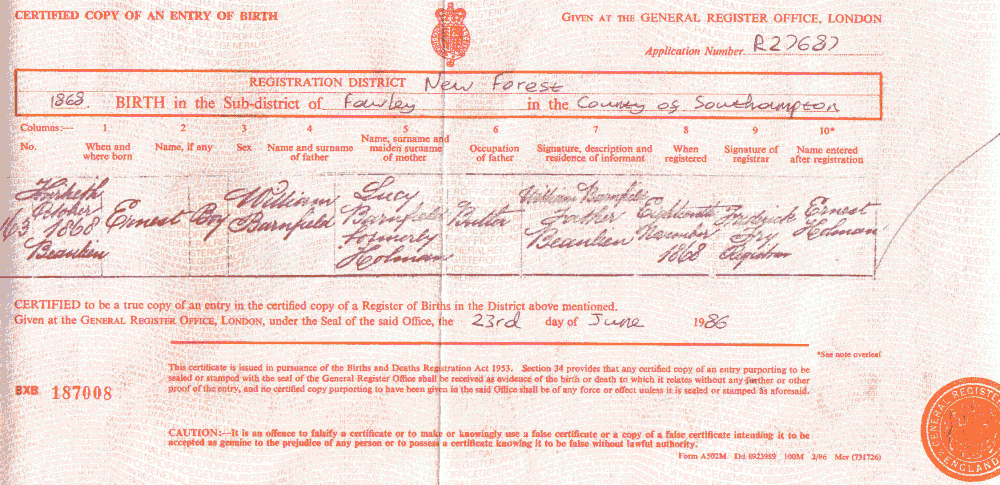 CERTIFIED COPY OF AN ENTRY OF BIRTH
GIVEN AT THE GENERAL REGISTER OFFICE, LONDON
Application Number R27687
REGISTRATION DISTRICT New Forest
1868. BIRTH in the Sub-district of Fawley in the County of Southampton
Columns:— 1 2 3 4 5 6 7 8 9 10*
No. When and where born Name, if any Sex Name and surname of father Name, surname and maiden surname of mother Occupation of father Signature, description and residence of informant When registered Signature of registrar Name entered after registration
October 1868 Beaulieu
Ernest
Boy
William Barnfield
Lucy Barnfield formerly Holman
Butler
William Barnfield Father Beaulieu
Eighteenth November 1868
Fredrick Fry Registrar
Ernest Holman
CERTIFIED to be a true copy of an entry in the certified copy of a Register of Births in the District above mentioned.
Given at the GENERAL REGISTER OFFICE, LONDON, under the Seal of the said Office, the 23rd day of June 1986
*See note overleaf
This certificate is issued in pursuance of the Births and Deaths Registration Act 1953. Section 34 provides that any certified copy of an entry purporting to be
sealed or stamped with the seal of the General Register Office shall be received as evidence of the birth or death to which it relates without any further or other
proof of the entry, and no certified copy purporting to have been given in the said Office shall be of any force or effect unless it is sealed or stamped as aforesaid.
BXB 187008
CAUTION:—It is an offence to falsify a certificate or to make or knowingly use a false certificate or a copy of a false certificate intending it to be
accepted as genuine to the prejudice of any person or to possess a certificate knowing it to be false without lawful authority.
Form A502M Dd 8923989 100M 2/86 Mcr (731726)
GENERAL REGISTER
ENGLAND